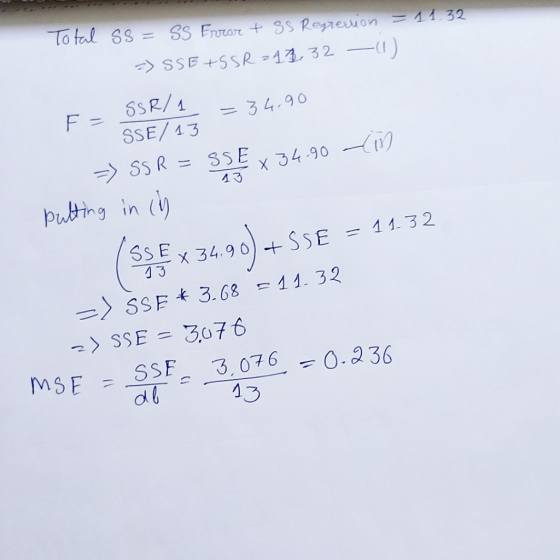 Total SS = SS Error + SS Regression = 11.32
=> SSE + SSR = 11.32 —(i)
F = SSR/1 / SSE/13 = 34.90
=> SSR = SSE/13 × 34.90 —(ii)
putting in (i)
(SSE/13 × 34.90) + SSE = 11.32
=> SSE * 3.68 = 11.32
=> SSE = 3.076
MSE = SSE/df = 3.076/13 = 0.236